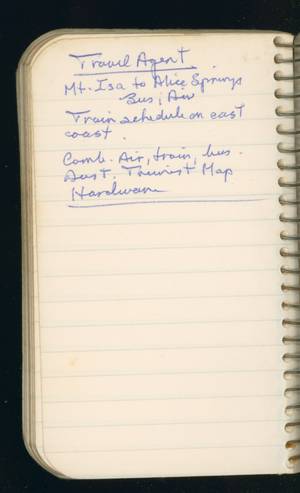 Travel Agent
Mt. Isa to Alice Springs
Bus; Air
Train schedule on east
coast.
Comb. Air, train, bus.
Aust. Tourist Map
Hardware